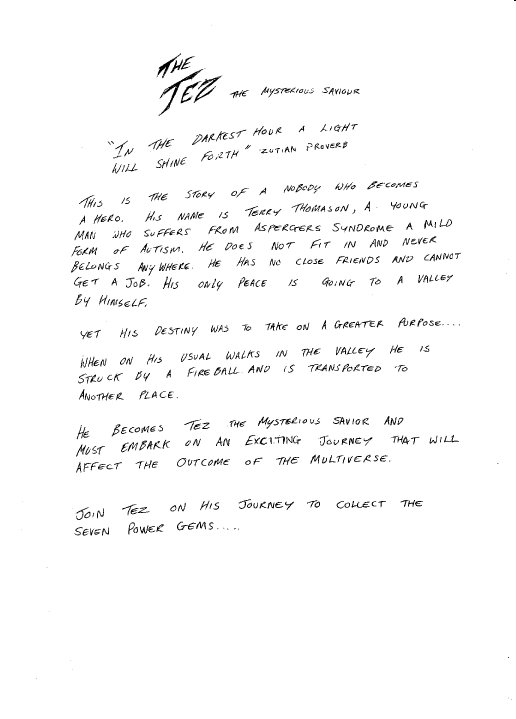 THE
TEZ THE MYSTERIOUS SAVIOUR
"IN THE DARKEST HOUR A LIGHT
WILL SHINE FORTH" ZUTIAN PROVERB
THIS IS THE STORY OF A NOBODY WHO BECOMES
A HERO. HIS NAME IS TERRY THOMASON, A YOUNG
MAN WHO SUFFERS FROM ASPERGERS SYNDROME A MILD
FORM OF AUTISM. HE DOES NOT FIT IN AND NEVER
BELONGS ANYWHERE. HE HAS NO CLOSE FRIENDS AND CANNOT
GET A JOB. HIS ONLY PEACE IS GOING TO A VALLEY
BY HIMSELF.
YET HIS DESTINY WAS TO TAKE ON A GREATER PURPOSE....
WHEN ON HIS USUAL WALKS IN THE VALLEY HE IS
STRUCK BY A FIREBALL AND IS TRANSPORTED TO
ANOTHER PLACE.
HE BECOMES TEZ THE MYSTERIOUS SAVIOR AND
MUST EMBARK ON AN EXCITING JOURNEY THAT WILL
AFFECT THE OUTCOME OF THE MULTIVERSE.
JOIN TEZ ON HIS JOURNEY TO COLLECT THE
SEVEN POWER GEMS.....